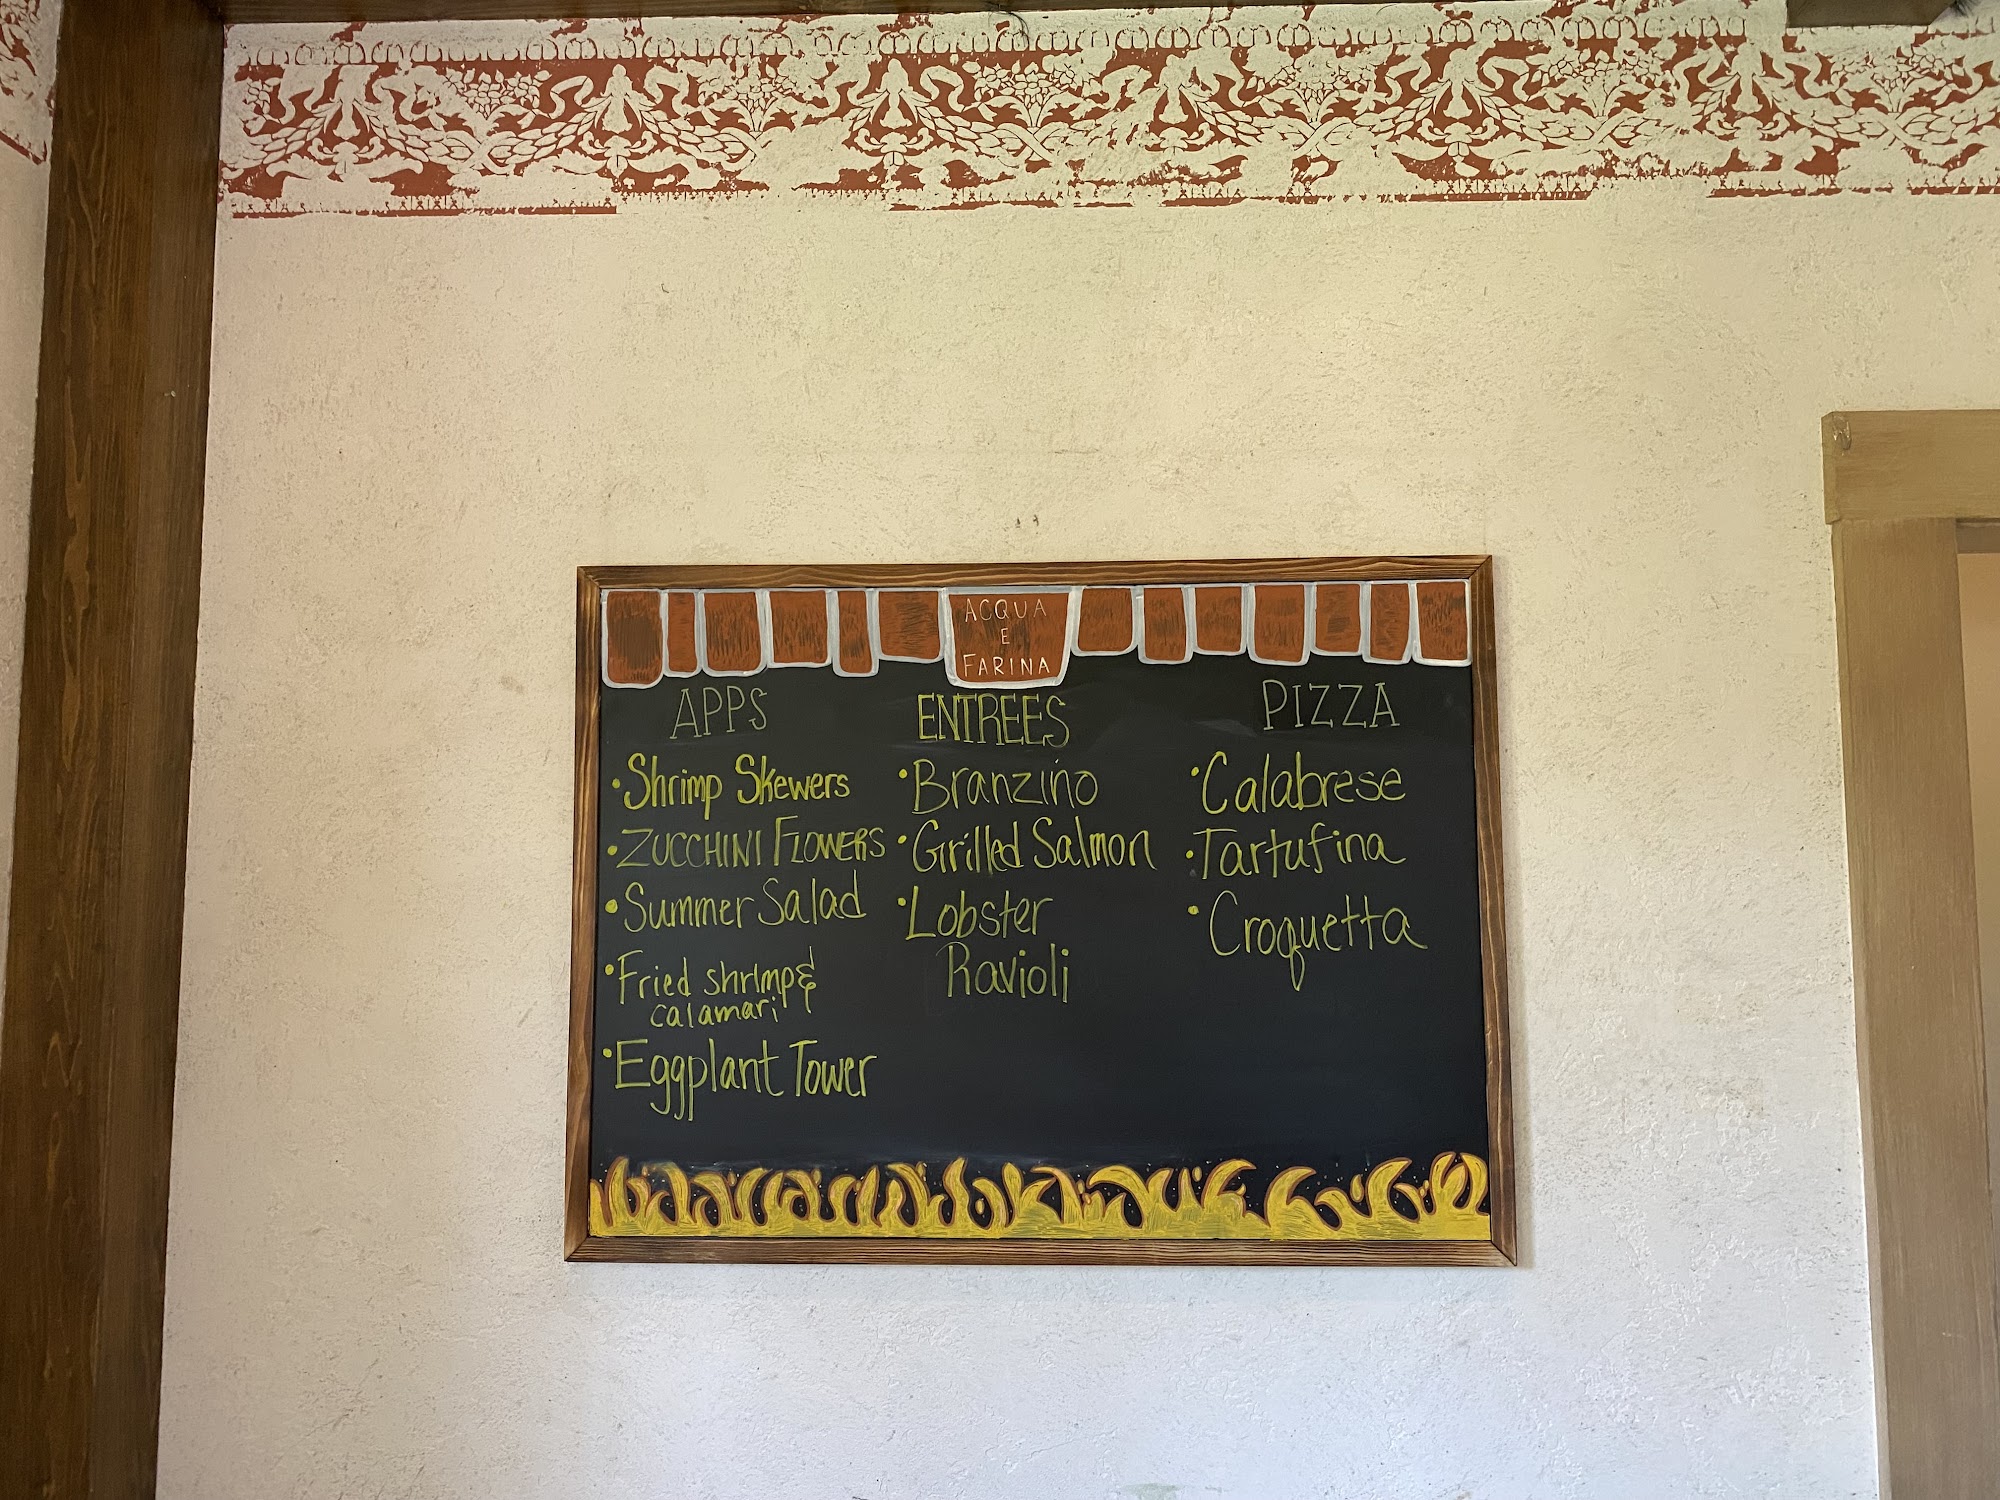 ACQUA
E
FARINA
APPS
• Shrimp Skewers
• ZUCCHINI FLOWERS
• Summer Salad
• Fried shrimp &
calamari
• Eggplant Tower
ENTREES
• Branzino
• Grilled Salmon
• Lobster
Ravioli
PIZZA
• Calabrese
• Tartufina
• Croquetta